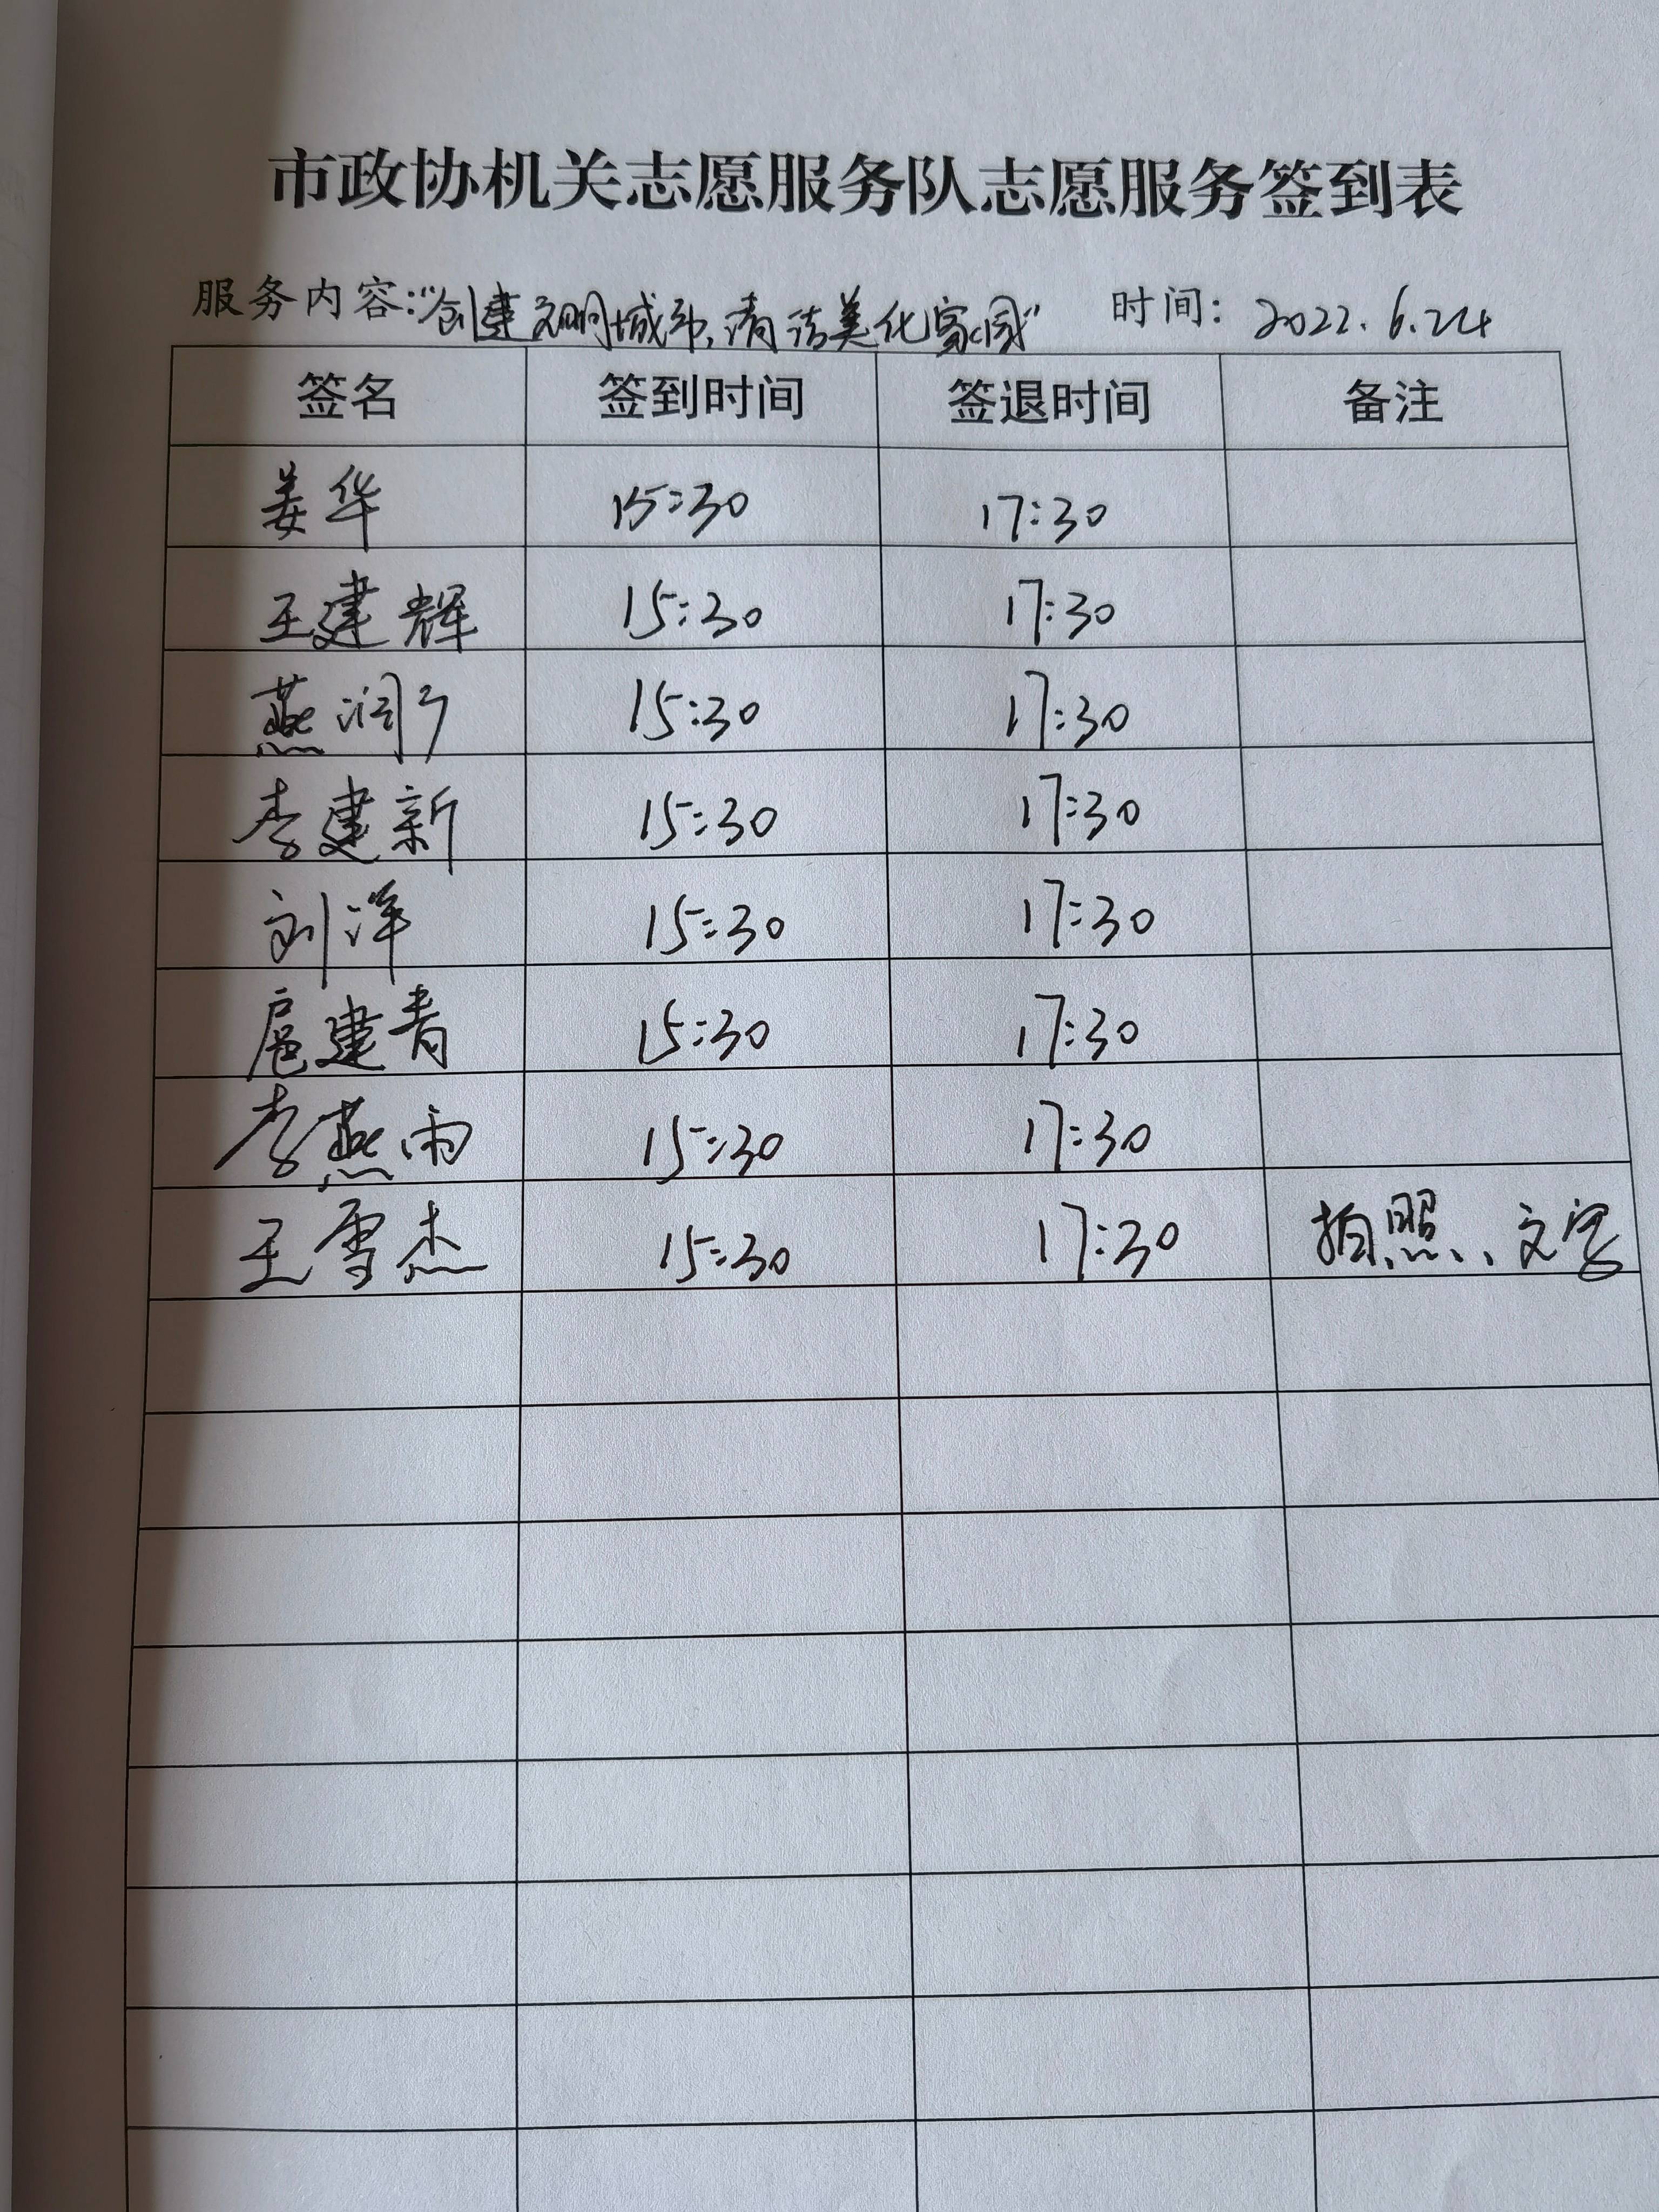 市政协机关志愿服务队志愿服务签到表
服务内容:“创建文明城市,清洁美化家园” 时间: 2022.6.24
签名 签到时间 签退时间 备注
姜华 15:30 17:30
王建辉 15:30 17:30
燕润 15:30 17:30
李建新 15:30 17:30
刘洋 15:30 17:30
扈建青 15:30 17:30
李燕雨 15:30 17:30
王雪杰 15:30 17:30 拍照、文字